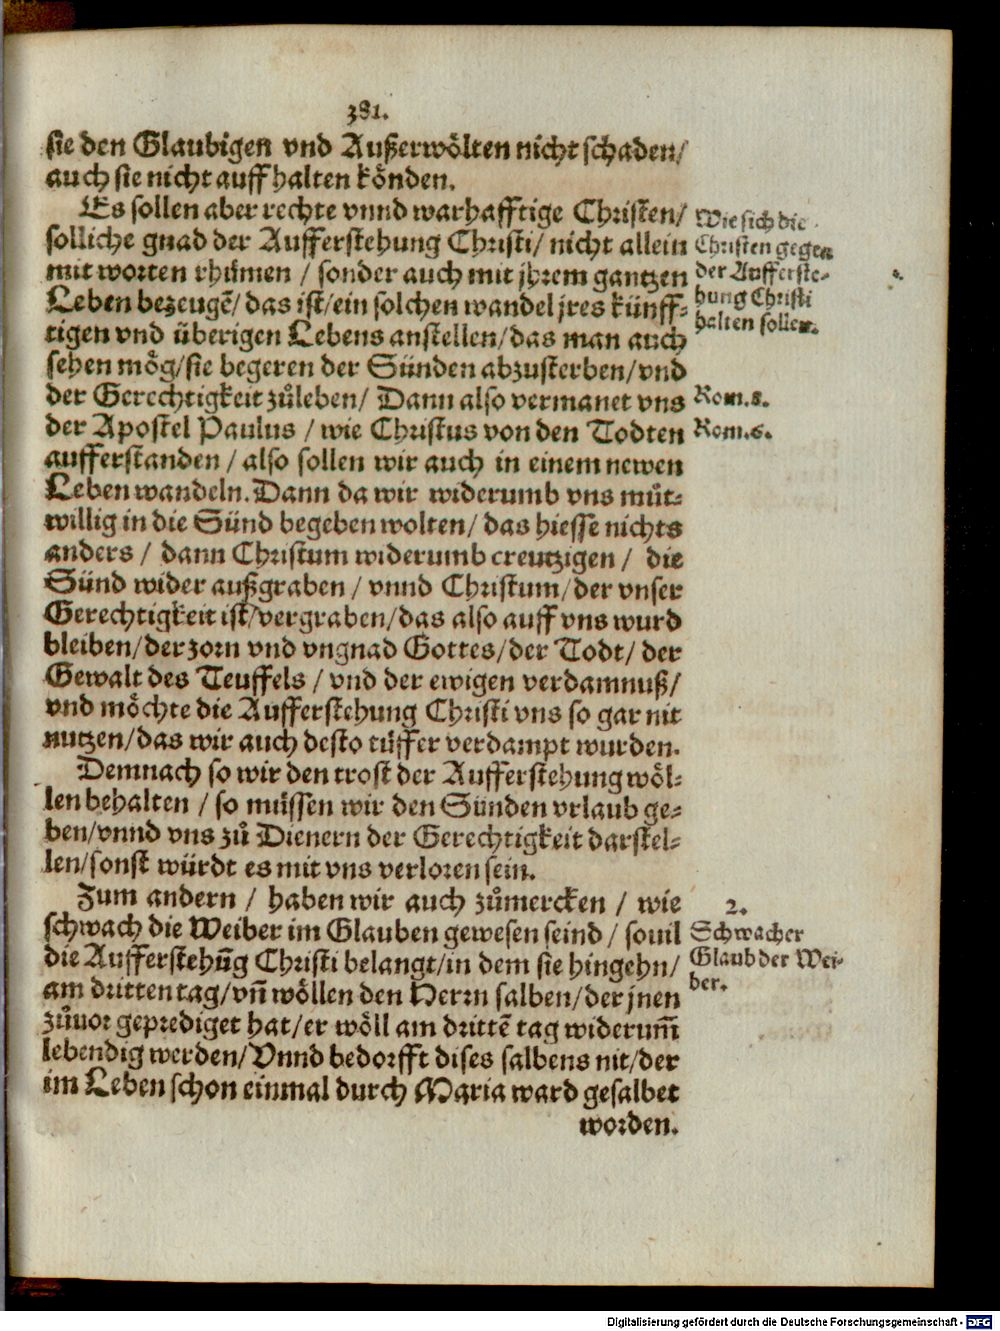 381.
sie den Glaubigen vnd Außerwölten nicht schaden/
auch sie nicht auffhalten könden.
Es sollen aber rechte vnnd warhafftige Christen/
solliche gnad der Aufferstehung Christi/ nicht allein
mit worten rhümen / sonder auch mit jhrem gantzen
Leben bezeugẽ/ das ist/ ein solchen wandel jres künff-
tigen vnd überigen Lebens anstellen/ das man auch
sehen mög/ sie begeren der Sünden abzusterben/ vnd
der Gerechtigkeit zůleben/ Dann also vermanet vns
der Apostel Paulus / wie Christus von den Todten
aufferstanden / also sollen wir auch in einem newen
Leben wandeln. Dann da wir widerumb vns můt-
willig in die Sünd begeben wolten/ das hiesse nichts
anders / dann Christum widerumb creutzigen / die
Sünd wider außgraben / vnnd Christum/ der vnser
Gerechtigkeit ist/ vergraben/ das also auff vns wurd
bleiben/ der zorn vnd vngnad Gottes/ der Todt/ der
Gewalt des Teuffels / vnd der ewigen verdamnuß/
vnd möchte die Aufferstehung Christi vns so gar nit
nutzen/ das wir auch desto tüffer verdampt wurden.
Demnach so wir den trost der Aufferstehung wöl-
len behalten / so müssen wir den Sünden vrlaub ge-
ben/ vnnd vns zů Dienern der Gerechtigkeit darstel-
len/ sonst würdt es mit vns verloren sein.
Zum andern / haben wir auch zůmercken / wie
schwach die Weiber im Glauben gewesen seind / souil
die Aufferstehũg Christi belangt/ in dem sie hingehn/
am dritten tag/ vñ wöllen den Herrn salben/ der jnen
zůuor geprediget hat/ er wöll am drittẽ tag widerum̃
lebendig werden/ Vnnd bedorfft dises salbens nit/ der
im Leben schon einmal durch Maria ward gesalbet
worden.
Wie sich die
Christen gegen
der Aufferste-
hung Christi
halten sollen.
Rom. 8.
Rom. 6.
2.
Schwacher
Glaub der Wei-
ber.
Digitalisierung gefördert durch die Deutsche Forschungsgemeinschaft - DFG